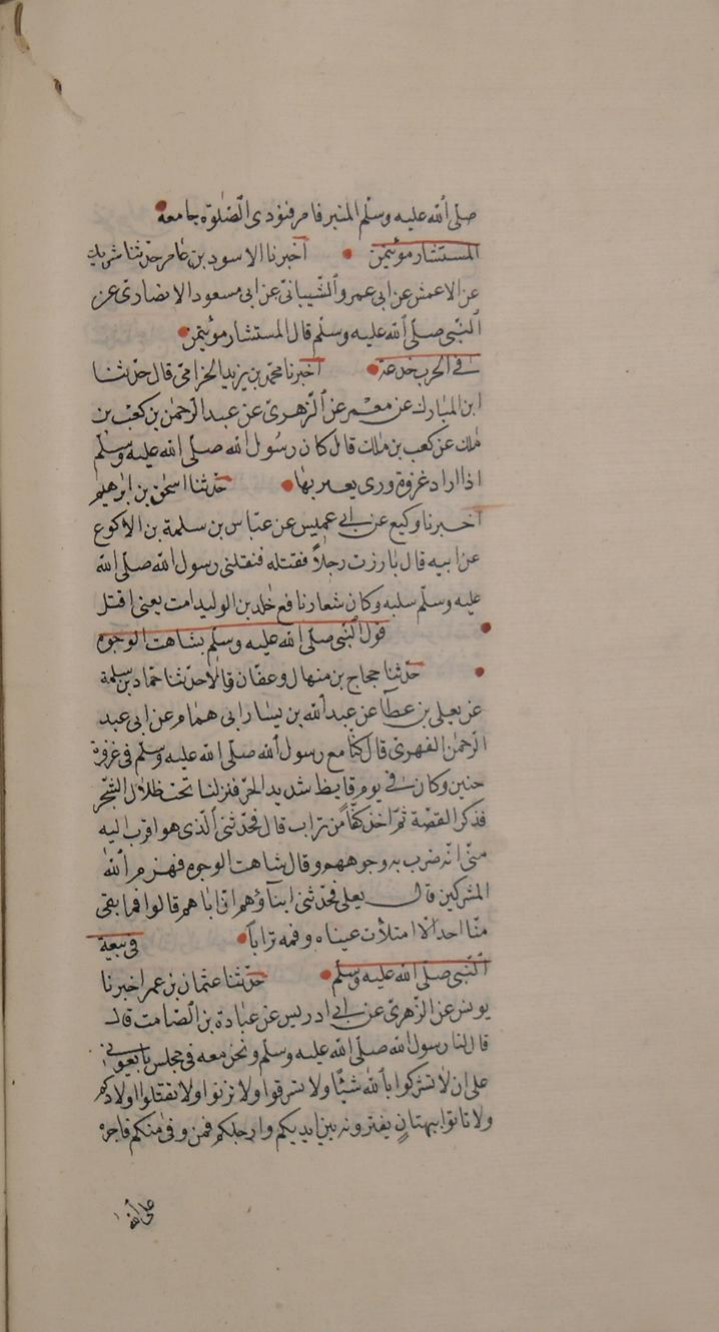 صلى الله عليه وسلم المنبر فامر فنودى الصلوة جامعة
المستشار مؤتمن اخبرنا الاسود بن عامر حدثنا شريك
عن الاعمش عن ابى عمرو الشيبانى عن ابى مسعود الانصارى عن
النبى صلى الله عليه وسلم قال المستشار مؤتمن
فى الحرب خدعة اخبرنا محمد بن يزيد الحزامى قال حدثنا
ابن المبارك عن معمر عن الزهرى عن عبد الرحمن بن كعب بن
ملك عن كعب بن ملك قال كان رسول الله صلى الله عليه وسلم
اذا اراد غزوة ورى بغيرها حدثنا اسحق بن ابرهيم
اخبرنا وكيع عن ابى عميس عن عباس بن سلمة بن الاكوع
عن ابيه قال بارزت رجلاً فقتله فنفلنى رسول الله صلى الله
عليه وسلم سلبه وكان شعارنا مع خلد بن الوليد امت يعنى اقتل
قول النبى صلى الله عليه وسلم بشاهت الوجوه
حدثنا حجاج بن منهال وعفان قالا حدثنا حماد بن سلمة
عن يعلى بن عطآ عن عبد الله بن يسار ابى همام عن ابى عبد
الرحمن الفهرى قال كنا مع رسول الله صلى الله عليه وسلم فى غزوة
حنين وكان فى يوم قايظ شديد الحر فنزلنا تحت ظلال الشجر
فذكر القصة ثم اخذ كفاً من تراب قال فحدثنى الذى هو اقرب اليه
منى انه ضرب به وجوههم وقال شاهت الوجوه فهزم الله
المشركين قال يعلى فحدثنى ابنآؤهم ان اباهم قالوا فما بقى
منا احد الا امتلات عيناه وفمه تراباً فى بيعة
النبى صلى الله عليه وسلم حدثنا عثمان بن عمر اخبرنا
يونس عن الزهرى عن ابى ادريس عن عبادة بن الصامت قال
قال لنا رسول الله صلى الله عليه وسلم ونحن معه فى مجلس بايعونى
على ان لا تشركوا بالله شيئا ولا تسرقوا ولا تزنوا ولا تقتلوا اولادكم
ولا تاتوا ببهتانٍ يفترونه بين ايديكم وارجلكم فمن وفى منكم فاجره
على الله